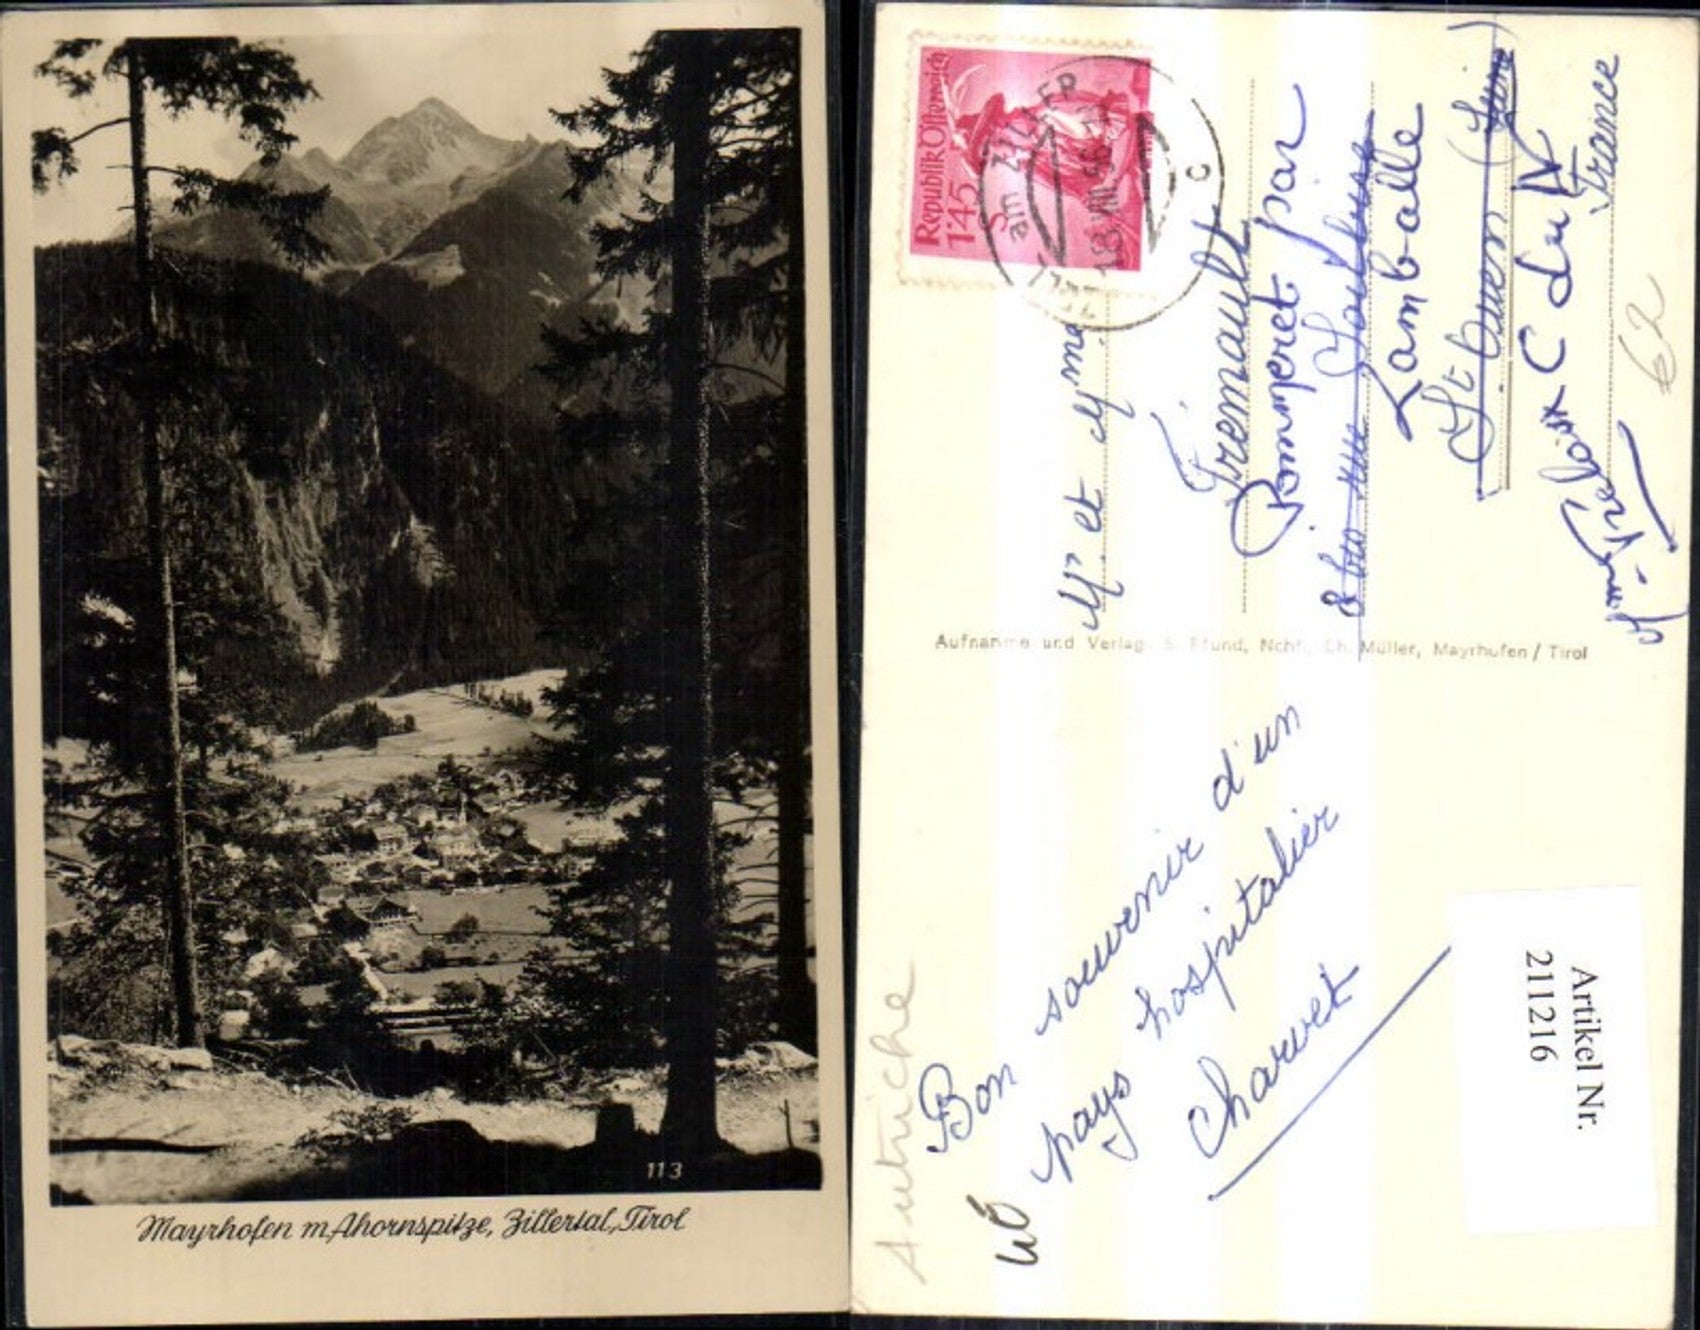 113
Mayrhofen m. Ahornspitze, Zillertal, Tirol
Republik Österreich
1'45
am ZILLER
18.VIII.56
c
Mr. et Mme
Frémault
Pommeret par
8 bis rue
Lamballe
St Ouen (Seine)
France
62
Aufnahme und Verlag: Pfund, Nchf. Ch. Müller, Mayrhofen / Tirol
Bon souvenir d'un
pays hospitalier
Charvet
Autriche
Artikel Nr.
211216